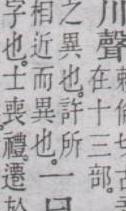 川聲
倫切古
在十三部。
之異也。許所
相近而異也。
一曰
字也。士喪禮。遷於